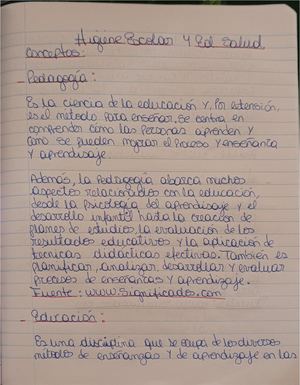 Higiene Escolar y Ed. Salud.
Conceptos:
- Pedagogía:
Es la ciencia de la educación y, Por extensión,
es el método Para enseñar. Se centra en
comprender cómo las Personas aprenden y
Cómo se pueden mejorar el Proceso y enseñanza
y aprendizaje.
Además, la Pedagogía abarca muchos
aspectos relacionados con la educación,
desde la Psicología del aprendizaje y el
desarrollo infantil hasta la creación de
planes de estudios, la evaluación de los
resultados educativos y la aplicación de
tecnicas didácticas efectivas. También es
Planificar, analizar, desarrollar y evaluar
procesos de enseñanzas y aprendizaje.
Fuente: www.Significados.com.
- Educación:
Es una disciplina que se ocupa de los diversos
métodos de enseñanzas y de aprendizaje en las